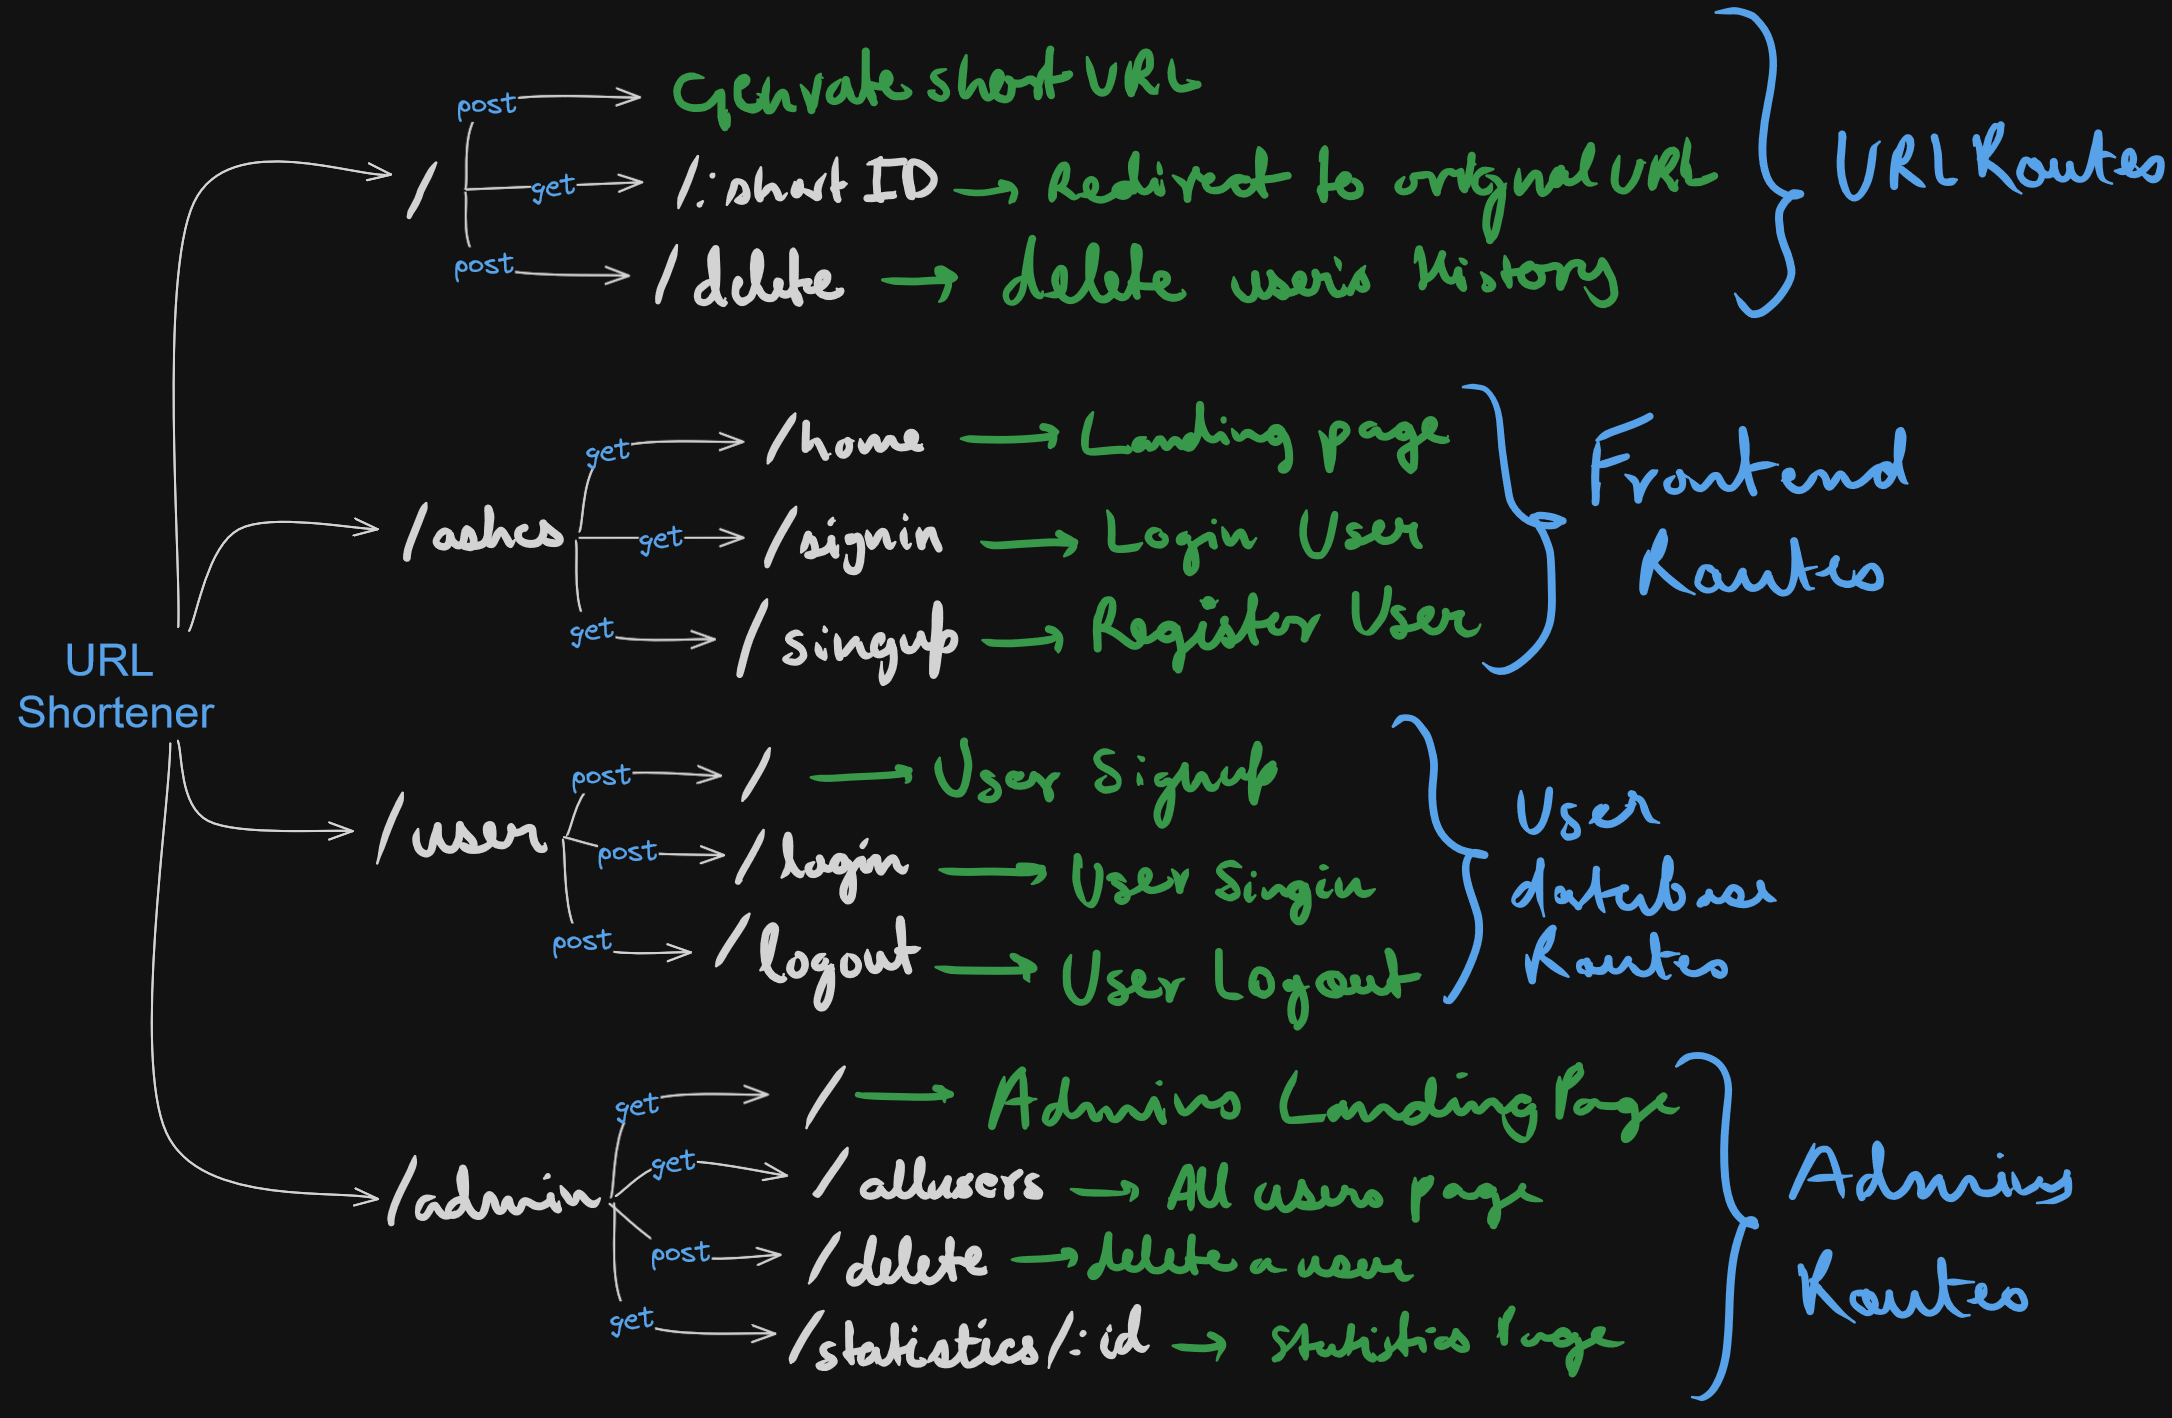 post Genrate short URL
/
get /:short ID Redirect to original URL
post /delete delete user's History
URL Routes
/ashcs
get /home Landing page
get /signin Login User
get /singup Register User
Frontend
Routes
URL
Shortener
/user
post / User Signup
post /login User Singin
post /logout User Logout
User
database
Routes
/admin
get / Admins Landing Page
get /allusers All users page
post /delete delete a user
get /statistics/:id Statistics Page
Admins
Routes